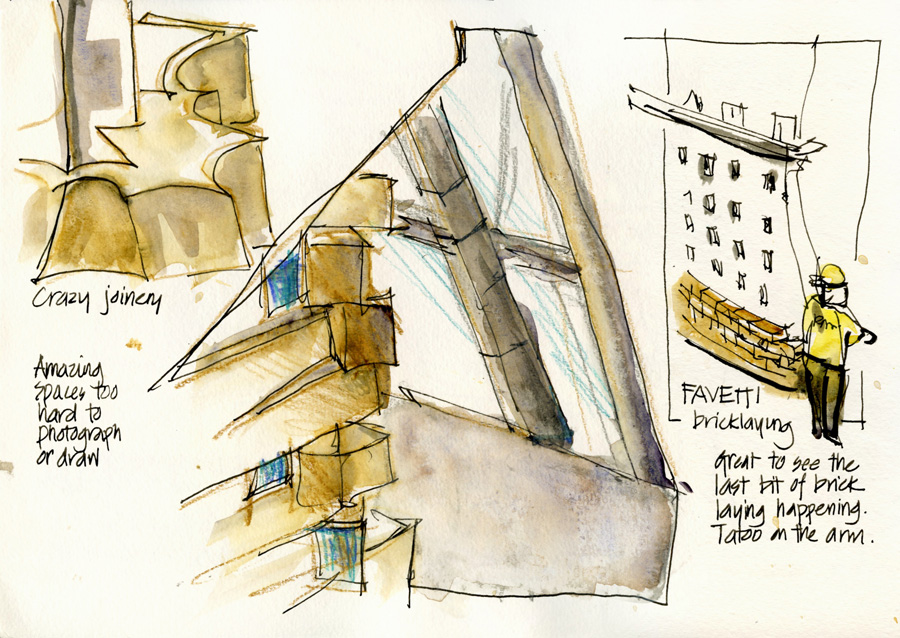 Crazy joinery
Amazing
spaces too
hard to
photograph
or draw
FAVETTI
bricklaying
Great to see the
last bit of brick
laying happening.
Tatoo on the arm.